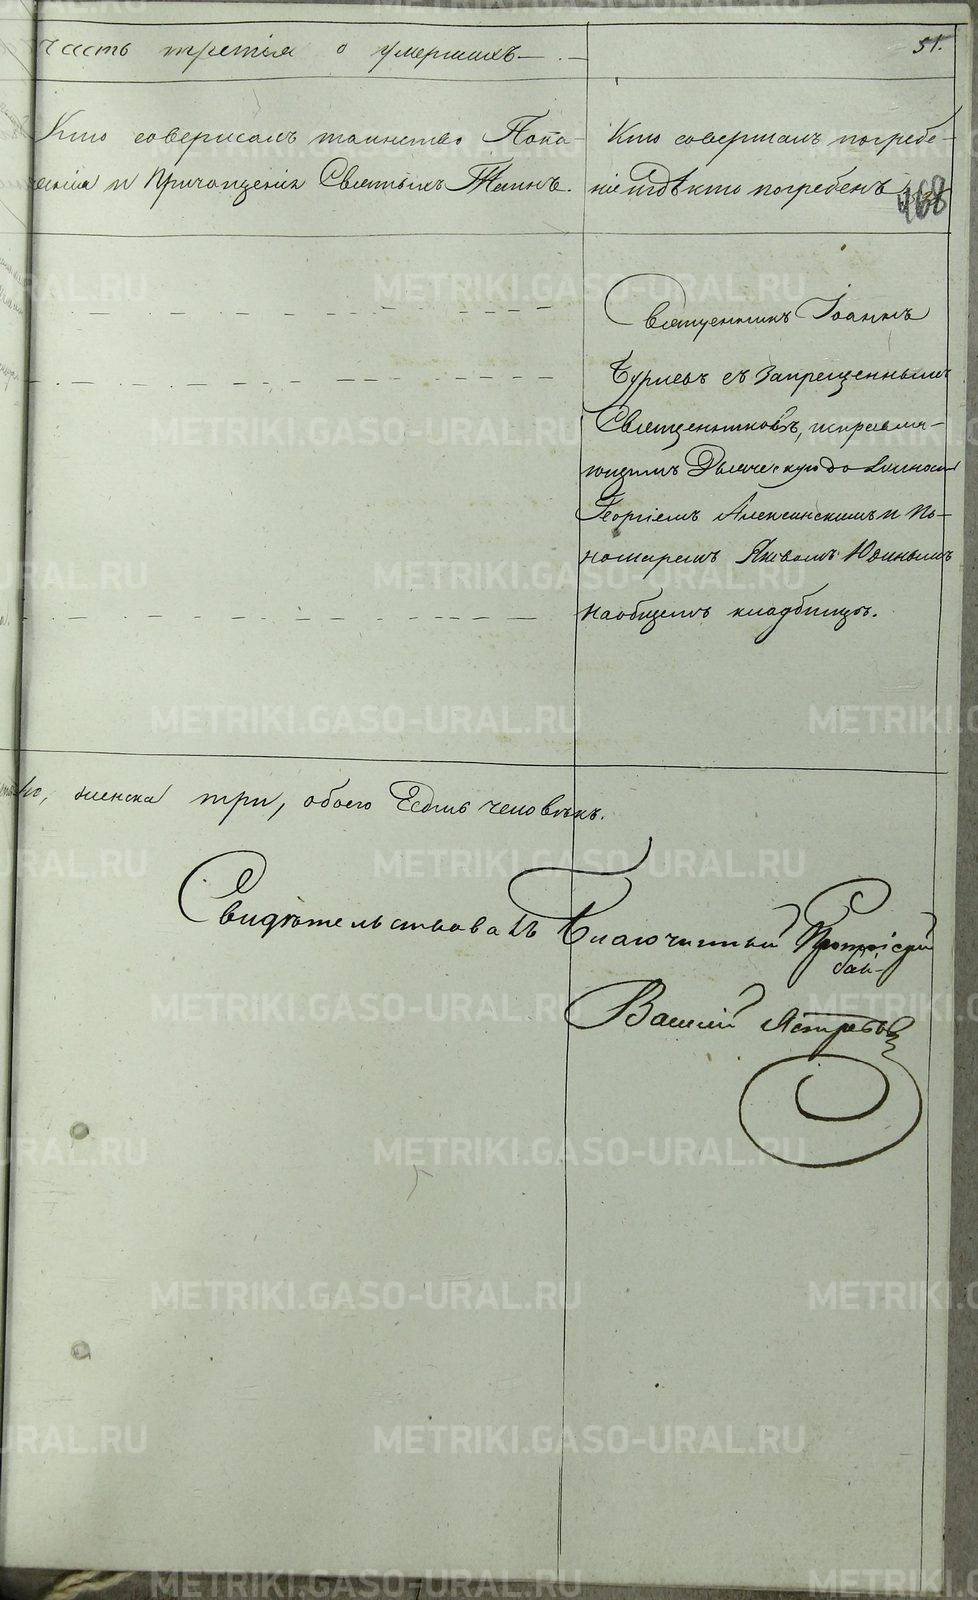 часть третія о умершихъ.
51.
Кто совершалъ таинство Пока-
янія и Причащенія Святыхъ Таинъ.
Кто совершалъ погребе-
ніе и гдѣ кто погребенъ
468
Священникъ Іоаннъ
Бурлевъ съ запрещеннымъ
Священникомъ, исправля-
ющимъ Дьяческую должность
Георгіемъ Алексинскимъ и По-
номаремъ Яковомъ Юдинымъ
на общемъ кладбищѣ.
женска три, обоего Семь человѣкъ.
Свидѣтельствовалъ Благочинный Протоіерей
Василій Ястребовъ
METRIKI.GASO-URAL.RU